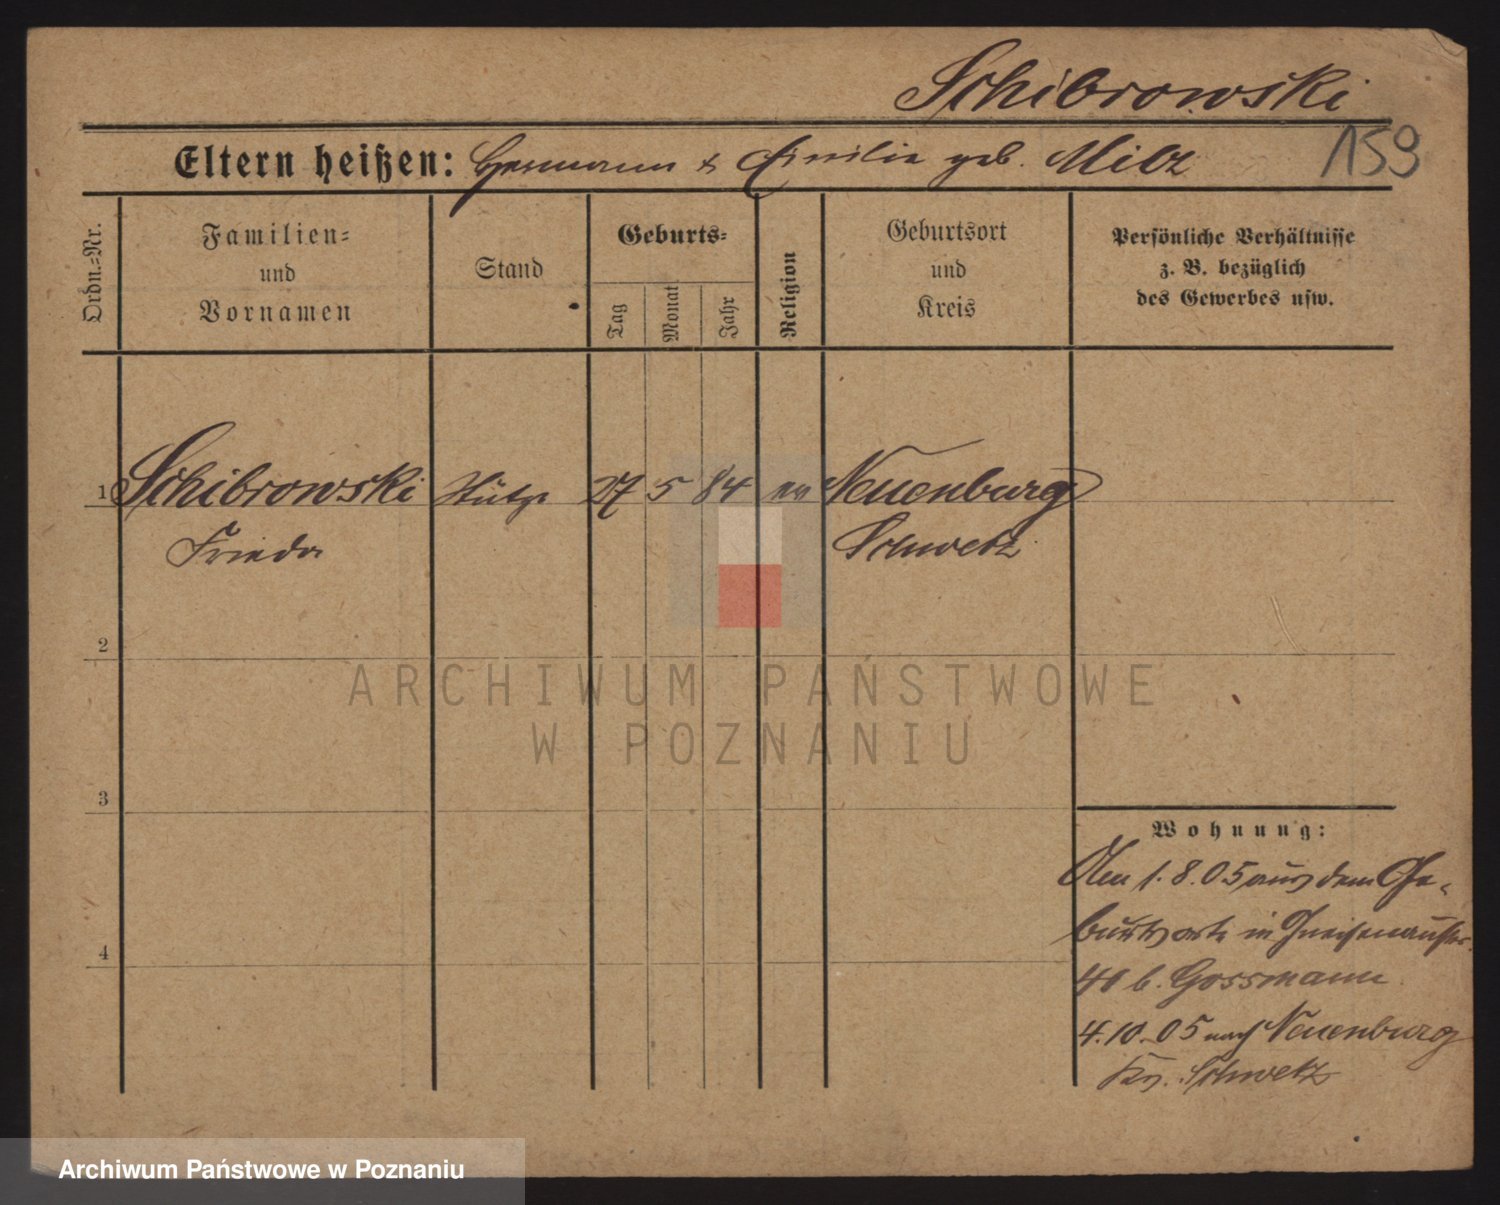 Schibrowski
159
Eltern heißen: Hermann & Emilie geb. Milz
Ordn.-Nr.
Familien-
und
Vornamen
Stand
Geburts-
Tag
Monat
Jahr
Religion
Geburtsort
und
Kreis
Persönliche Verhältnisse
z. B. bezüglich
des Gewerbes usw.
1 Schibrowski Stütze 27 5 84 ev Neuenburg
Frieda Schwetz
2
3
4
Wohnung:
Am 1.8.05 aus dem Ge-
burtsorte in Gneisenaustr.
40 b. Gossmann
4.10.05 nach Neuenburg
Kr. Schwetz
ARCHIWUM PAŃSTWOWE
W POZNANIU
Archiwum Państwowe w Poznaniu